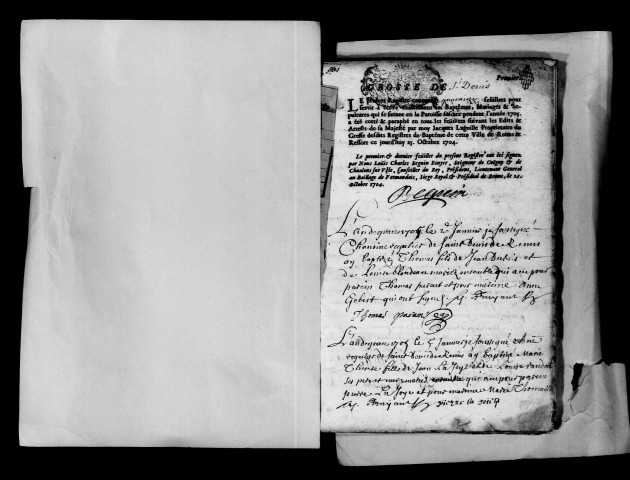 1705
Premier
GROSSE DE St Denis
LE present Registre contenant feüillets pour
servir à Baptêmes, Mariages & Se-
pultures qui se feront en la Paroisse susdite pendant l'année 1705.
a été cotté & paraphé en tous les feüillets suivant les Edits &
Arrests de sa Majesté par moy Jacques Lagoille Proprietaire du
Greffe desdits Registres de Baptême de cette Ville de Reims &
Ressort ce jourd'huy 25. Octobre 1704.
Le premier & dernier feüillet du present Registre ont été signez
par Nous Loüis Charles Seguin Ecuyer, Seigneur de Coigny & de
Chaalons sur Vesle, Conseiller du Roy, President, Lieutenant General
au Bailliage de Vermandois, Siege Royal & Présidial de Reims, le 25.
Octobre 1704.
Seguin
L'an de grace 1705 le 2e Janvier je soussigné
Chanoine regulier de Saint Denis de Reims
ay baptizé Thomas fils de Jean Dubois et
de Louise blondeau mariez ensemble qui a eu pour
parein Thomas pasant et pour mareine Anne
Gobert qui ont signé
Thomas pasant
L'an de grace 1705 le 5 Janvier je soussigné
regulier de Saint Denis de Reims ay baptizé Marie
fille de Jean La Joye et de Louise
ses pere et mere mariez ensemble qui a eu pour parein
pierre La Joye et pour mareine Marie
pierre la joie